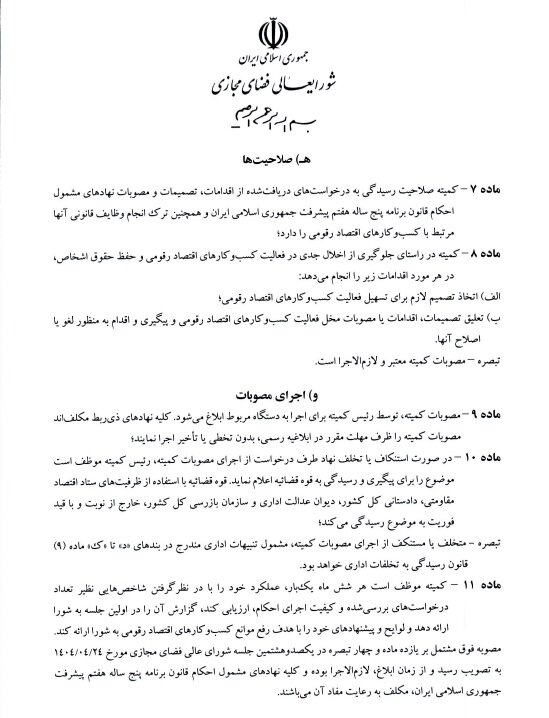 جمهوری اسلامی ایران
شورایعالی فضای مجازی
بسم الله الرحمن الرحیم
هـ) صلاحیت‌ها
ماده ۷ – کمیته صلاحیت رسیدگی به درخواست‌های دریافت‌شده از اقدامات، تصمیمات و مصوبات نهادهای مشمول
احکام قانون برنامه پنج ساله هفتم پیشرفت جمهوری اسلامی ایران و همچنین ترک انجام وظایف قانونی آنها
مرتبط با کسب‌وکارهای اقتصاد رقومی را دارد؛
ماده ۸ – کمیته در راستای جلوگیری از اخلال جدی در فعالیت کسب‌وکارهای اقتصاد رقومی و حفظ حقوق اشخاص،
در هر مورد اقدامات زیر را انجام می‌دهد:
الف) اتخاذ تصمیم لازم برای تسهیل فعالیت کسب‌وکارهای اقتصاد رقومی؛
ب) تعلیق تصمیمات، اقدامات یا مصوبات مخل فعالیت کسب‌وکارهای اقتصاد رقومی و پیگیری و اقدام به منظور لغو یا
اصلاح آنها.
تبصره – مصوبات کمیته معتبر و لازم‌الاجرا است.
و) اجرای مصوبات
ماده ۹ – مصوبات کمیته، توسط رئیس کمیته برای اجرا به دستگاه مربوط ابلاغ می‌شود. کلیه نهادهای ذی‌ربط مکلف‌اند
مصوبات کمیته را ظرف مهلت مقرر در ابلاغیه رسمی، بدون تخطی یا تأخیر اجرا نمایند؛
ماده ۱۰ – در صورت استنکاف یا تخلف نهاد طرف درخواست از اجرای مصوبات کمیته، رئیس کمیته موظف است
موضوع را برای پیگیری و رسیدگی به قوه قضائیه اعلام نماید. قوه قضائیه با استفاده از ظرفیت‌های ستاد اقتصاد
مقاومتی، دادستانی کل کشور، دیوان عدالت اداری و سازمان بازرسی کل کشور، خارج از نوبت و با قید
فوریت به موضوع رسیدگی می‌کند؛
تبصره – متخلف یا مستنکف از اجرای مصوبات کمیته، مشمول تنبیهات اداری مندرج در بندهای «د» تا «ک» ماده (۹)
قانون رسیدگی به تخلفات اداری خواهد بود.
ماده ۱۱ – کمیته موظف است هر شش ماه یک‌بار، عملکرد خود را با در نظرگرفتن شاخص‌هایی نظیر تعداد
درخواست‌های بررسی‌شده و کیفیت اجرای احکام، ارزیابی کند، گزارش آن را در اولین جلسه به شورا
ارائه دهد و لوایح و پیشنهادهای خود را با هدف رفع موانع کسب‌وکارهای اقتصاد رقومی به شورا ارائه کند.
مصوبه فوق مشتمل بر یازده ماده و چهار تبصره در یکصدوهشتمین جلسه شورای عالی فضای مجازی مورخ ۱۴۰۴/۰۴/۲۴
به تصویب رسید و از زمان ابلاغ، لازم‌الاجرا بوده و کلیه نهادهای مشمول احکام قانون برنامه پنج ساله هفتم پیشرفت
جمهوری اسلامی ایران، مکلف به رعایت مفاد آن می‌باشند.